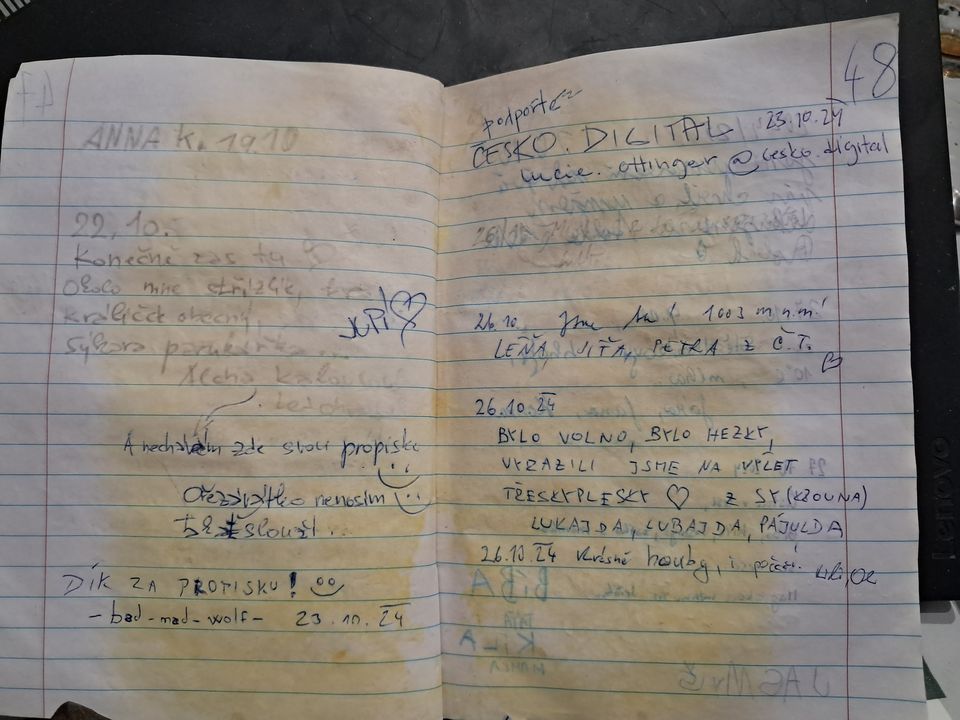 47
ANNA K. 19.10
22.10.
Konečně zas tu
Okolo mne střízlík,
králíček obecný,
sýkora parukářka...
JUPÍ
A nechávám zde svoji propisku
Ořezávátko nenosím
DÍK ZA PROPISKU!
-bad-mad-wolf- 23.10.24
48
podpořte
ČESKO.DIGITAL 23.10.24
lucie.ottinger@cesko.digital
26.10. Jsme tu 1003 m n.m!
LEŇA, JIŤA, PETRA Z Č.T.
26.10.24
BYLO VOLNO, BYLO HEZKY,
VYRAZILI JSME NA VÝLET
TŘESKYPLESKY Z SY(KROUNA)
LUKAJDA, LUBAJDA, PÁJULDA
26.10.24 Krásné houby, i počasí.
lenovo